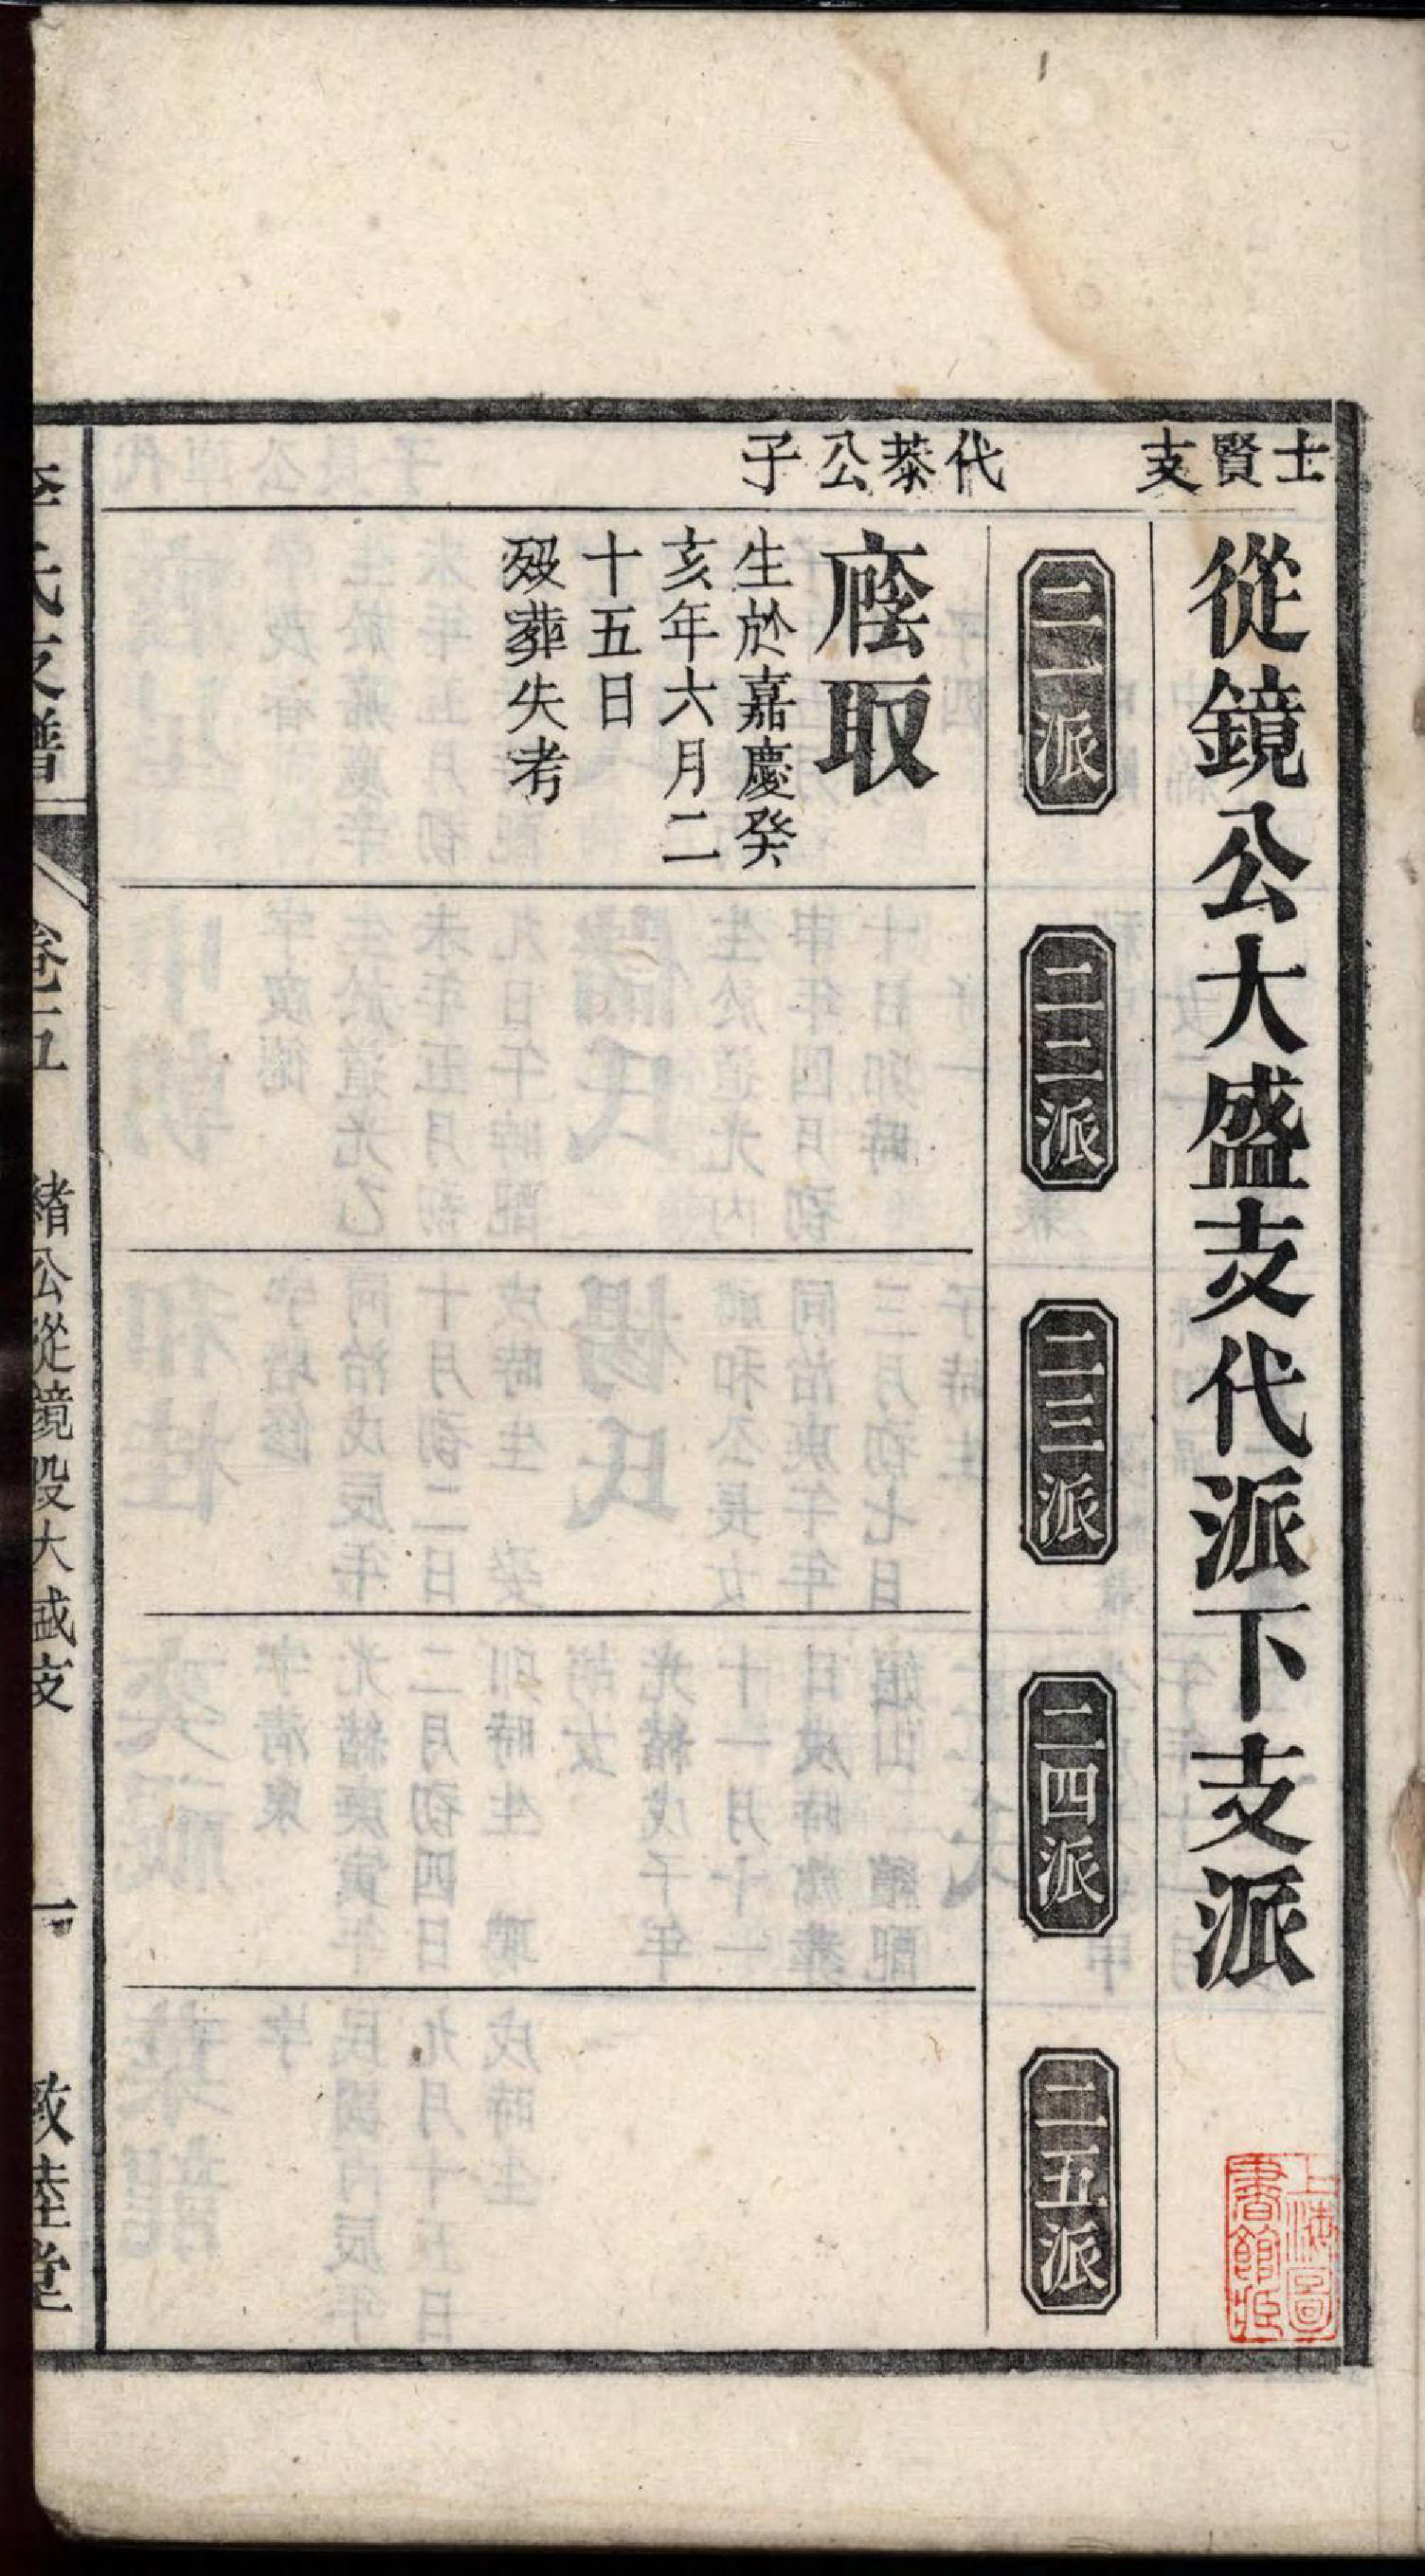 士賢支
從鏡公大盛支代派下支派
二一派
二二派
二三派
二四派
二五派
代棻公子
廕取
生於嘉慶癸
亥年六月二
十五日
歿葬失考
李氏支譜
卷五
緒公從鏡段大盛支
一
敦睦堂
上海圖
書館藏